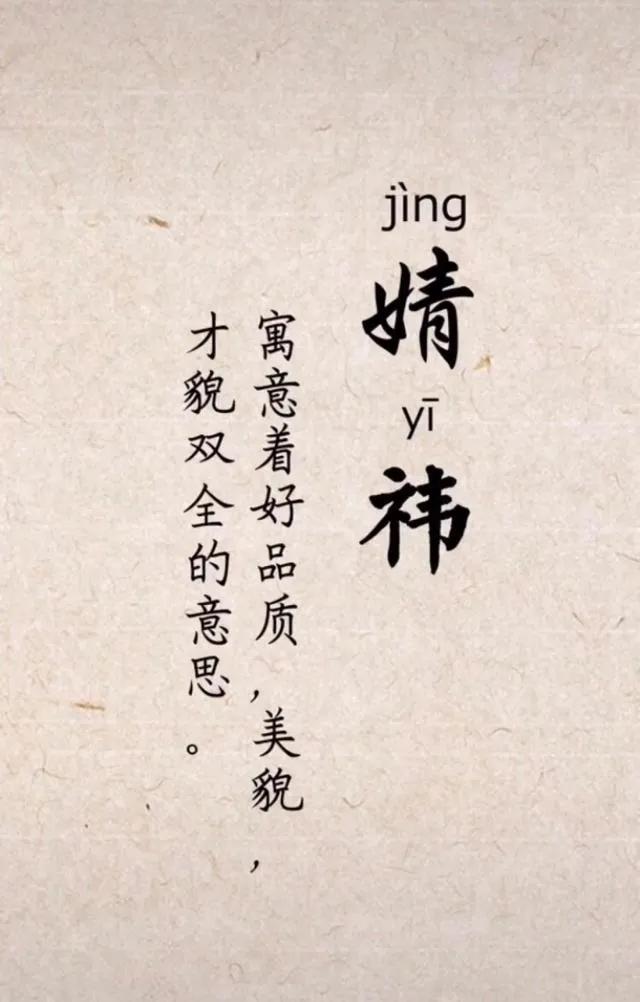 jìng
婧
yī
祎
寓意着好品质,美貌,
才貌双全的意思。